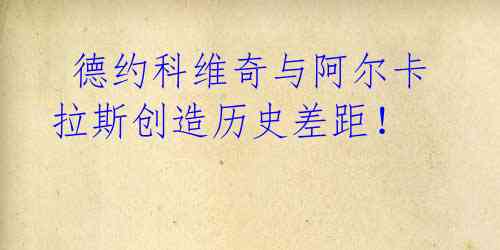 德约科维奇与阿尔卡
拉斯创造历史差距！